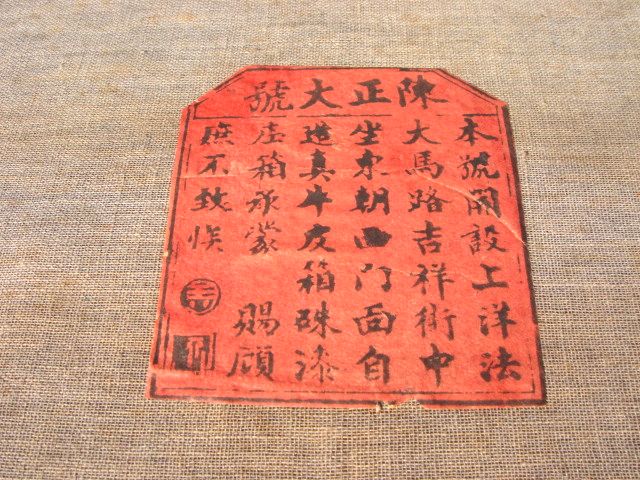 陳正大號
本號開設上洋法
大馬路吉祥街中
坐東朝西門面自
造真牛皮箱硃漆
皮箱承蒙 賜顧
庶不致悮